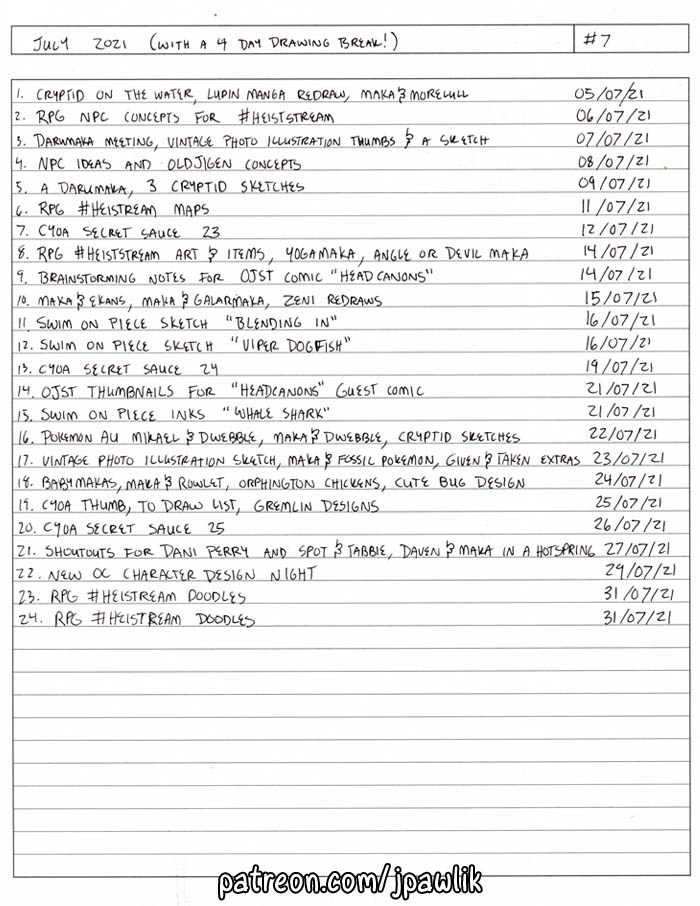 JULY 2021 (WITH A 4 DAY DRAWING BREAK!) #7
1. CRYPTID ON THE WATER, LUPIN MANGA REDRAW, MAKA & MORELULL 05/07/21
2. RPG NPC CONCEPTS FOR #HEISTSTREAM 06/07/21
3. DARUMAKA MEETING, VINTAGE PHOTO ILLUSTRATION THUMBS & A SKETCH 07/07/21
4. NPC IDEAS AND OLDJIGEN CONCEPTS 08/07/21
5. A DARUMAKA, 3 CRYPTID SKETCHES 09/07/21
6. RPG #HEISTREAM MAPS 11/07/21
7. CYOA SECRET SAUCE 23 12/07/21
8. RPG #HEISTSTREAM ART & ITEMS, YOGAMAKA, ANGLE OR DEVIL MAKA 14/07/21
9. BRAINSTORMING NOTES FOR OJST COMIC "HEAD CANONS" 14/07/21
10. MAKA & EKANS, MAKA & GALARMAKA, ZENI REDRAWS 15/07/21
11. SWIM ON PIECE SKETCH "BLENDING IN" 16/07/21
12. SWIM ON PIECE SKETCH "VIPER DOGFISH" 16/07/21
13. CYOA SECRET SAUCE 24 19/07/21
14. OJST THUMBNAILS FOR "HEADCANONS" GUEST COMIC 21/07/21
15. SWIM ON PIECE INKS "WHALE SHARK" 21/07/21
16. POKEMON AU MIKAEL & DWEBBLE, MAKA & DWEBBLE, CRYPTID SKETCHES 22/07/21
17. VINTAGE PHOTO ILLUSTRATION SKETCH, MAKA & FOSSIL POKEMON, GIVEN & TAKEN EXTRAS 23/07/21
18. BABYMAKAS, MAKA & ROWLET, ORPHINGTON CHICKENS, CUTE BUG DESIGN 24/07/21
19. CYOA THUMB, TO DRAW LIST, GREMLIN DESIGNS 25/07/21
20. CYOA SECRET SAUCE 25 26/07/21
21. SHOUTOUTS FOR DANI PERRY AND SPOT & TABBIE, DAVEN & MAKA IN A HOTSPRING 27/07/21
22. NEW OC CHARACTER DESIGN NIGHT 29/07/21
23. RPG #HEISTREAM DOODLES 31/07/21
24. RPG #HEISTREAM DOODLES 31/07/21
patreon.com/jpawlik